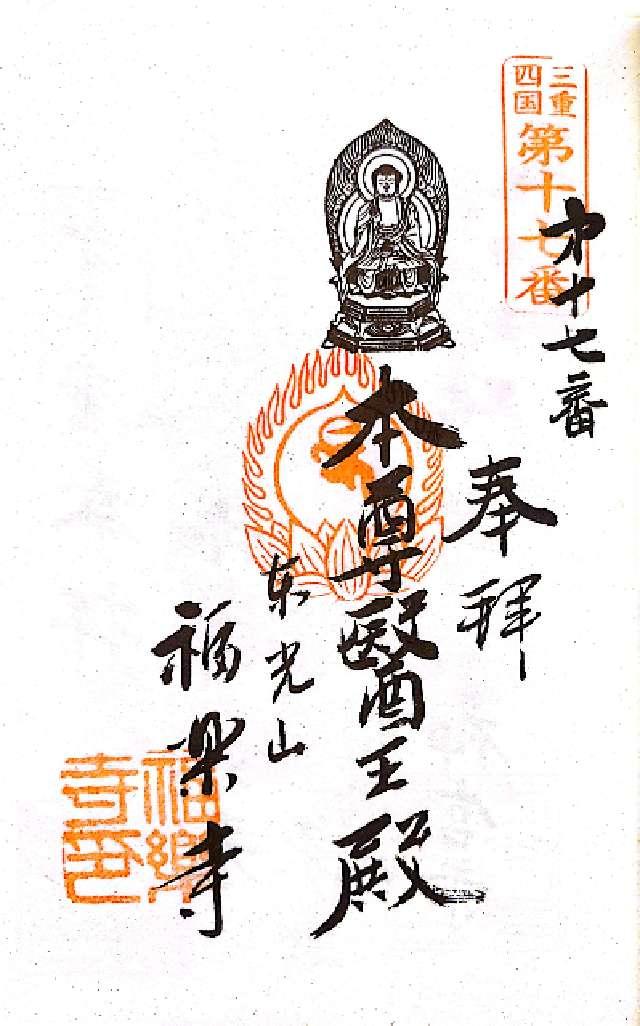 三重
四国
第十七番
第十七番
奉拜
本尊醫王殿
东光山
福楽寺
福樂
寺印